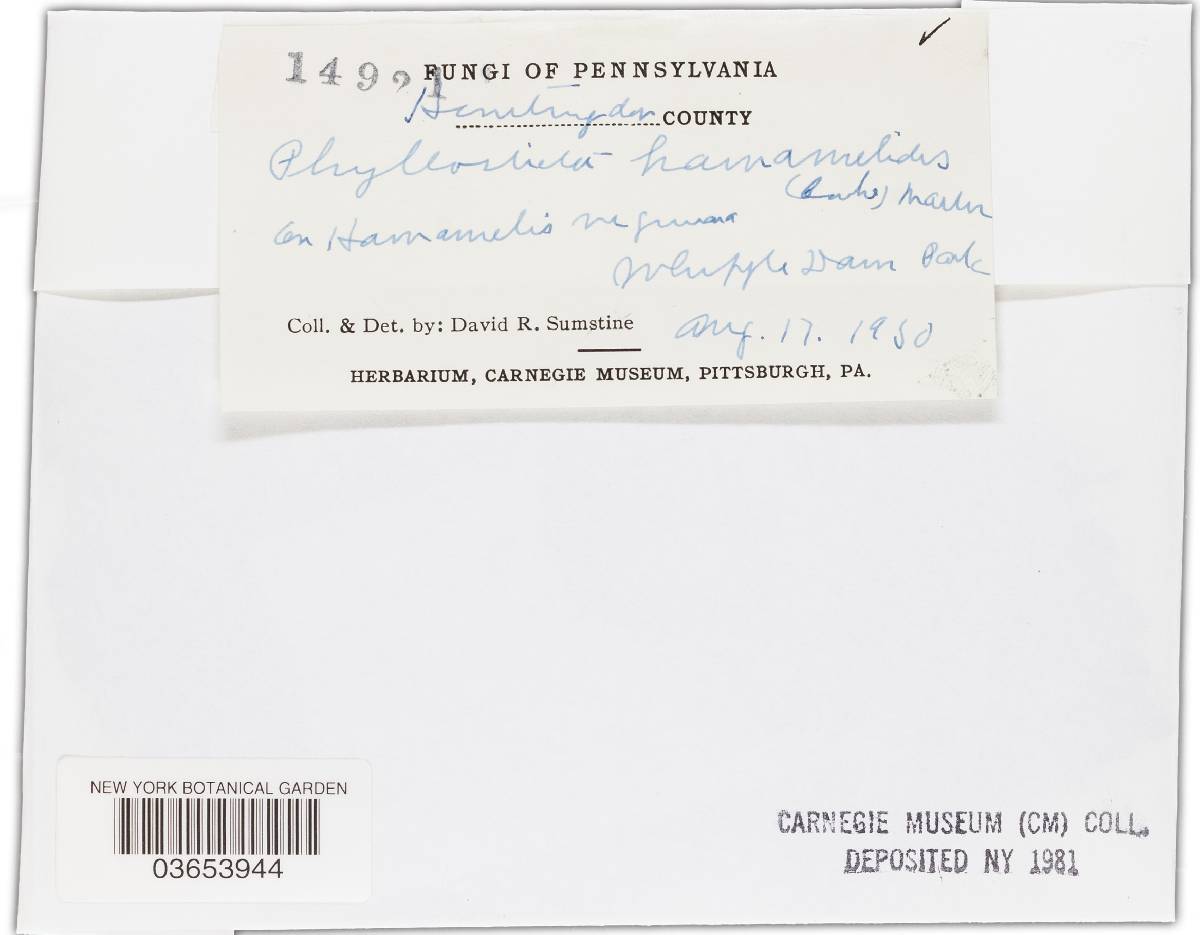 14921
FUNGI OF PENNSYLVANIA
Huntingdon COUNTY
Phyllosticta hamamelidis
(Cooke) Martin
On Hamamelis virginiana
Whipple Dam Park
Coll. & Det. by: David R. Sumstine
Aug. 17. 1950
HERBARIUM, CARNEGIE MUSEUM, PITTSBURGH, PA.
NEW YORK BOTANICAL GARDEN
03653944
CARNEGIE MUSEUM (CM) COLL.
DEPOSITED NY 1981